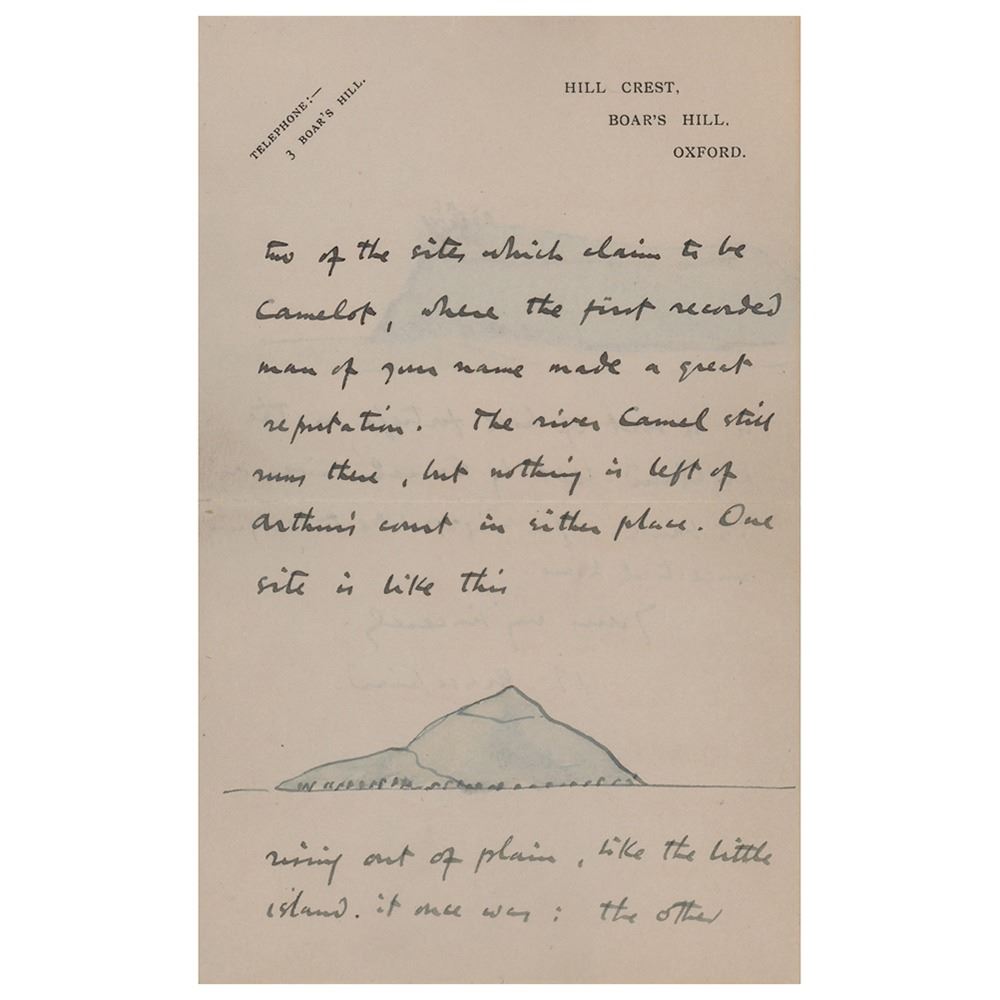 TELEPHONE:—
3 BOAR'S HILL.
HILL CREST,
BOAR'S HILL.
OXFORD.
two of the sites which claim to be
Camelot, where the first recorded
man of your name made a great
reputation. The river Camel still
runs there, but nothing is left of
Arthur's court in either place. One
site is like this
rising out of plain, like the little
island. it once was: the other